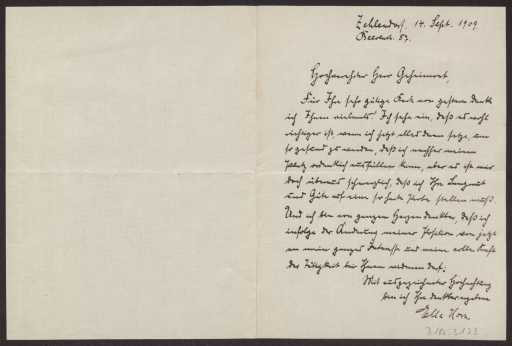 Zehlendorf, 14. Sept. 1909
Beerenstr. 53.
Hochverehrter Herr Geheimrat,
Für Ihre sehr gütige Karte von gestern danke
ich Ihnen vielmals! Ich sehe ein, daß es wohl
richtiger ist, wenn ich jetzt alles daran setze, um
so gesund zu werden, daß ich nachher meinen
Platz ordentlich ausfüllen kann, aber es ist mir
doch überaus schmerzlich, daß ich Ihre Langmut
und Güte auf eine so harte Probe stellen muß.
Und ich bin von ganzem Herzen dankbar, daß ich
infolge der Änderung meiner Position von jetzt
an mein ganzes Interesse und meine volle Kraft
der Tätigkeit bei Ihnen widmen darf.
Mit ausgezeichneter Hochachtung
bin ich Ihre dankbar ergebene
Ella Horn